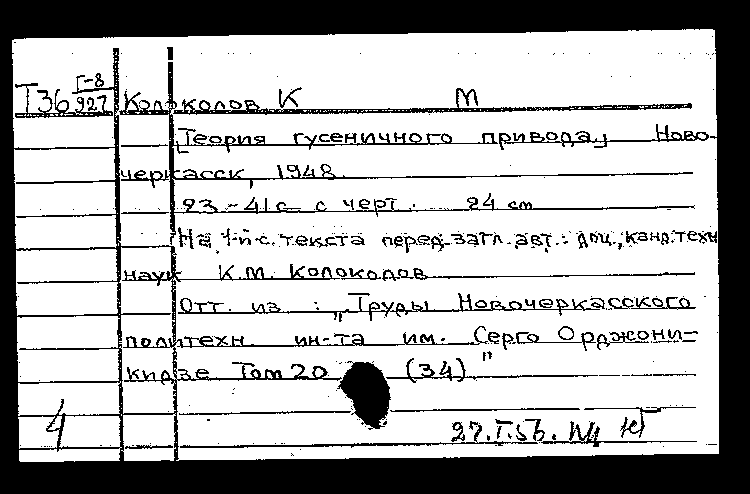 Т36 Г-8/927 Колоколов К М
[Теория гусеничного привода.] Ново-
черкасск, 1948.
23-41 с. с черт. 24 см
На 1-й с. текста перед загл. авт.: доц., канд. техн
наук К.М. Колоколов
Отт. из: „Труды Новочеркасского
политехн. ин-та им. Серго Орджони-
кидзе Том 20 (34)."
4 27.I.56.